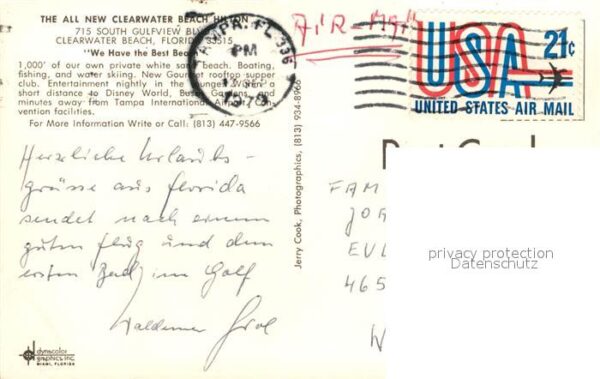 THE ALL NEW CLEARWATER BEACH HILTON
715 SOUTH GULFVIEW BLVD.
CLEARWATER BEACH, FLORIDA 33515
"We Have the Best Beach"
1,000' of our own private white sand beach. Boating,
fishing, and water skiing. New Gourmet rooftop supper
club. Entertainment nightly in the lounges. Within a
short distance to Disney World, Busch Gardens, and
minutes away from Tampa International Airport. Con-
vention facilities.
For More Information Write or Call: (813) 447-9566
Herzliche Urlaubs-
grüsse aus Florida
sendet nach einem
guten Flug und dem
ersten Bad im Golf
Waldemar
dynacolor
graphics inc.
MIAMI, FLORIDA
Jerry Cook, Photographics, (813) 934-8966
TAMPA, FL 336
PM
AIR-MAIL
USA 21c
UNITED STATES AIR MAIL
Post Card
FAM
JOA
EUL
465
W
privacy protection
Datenschutz